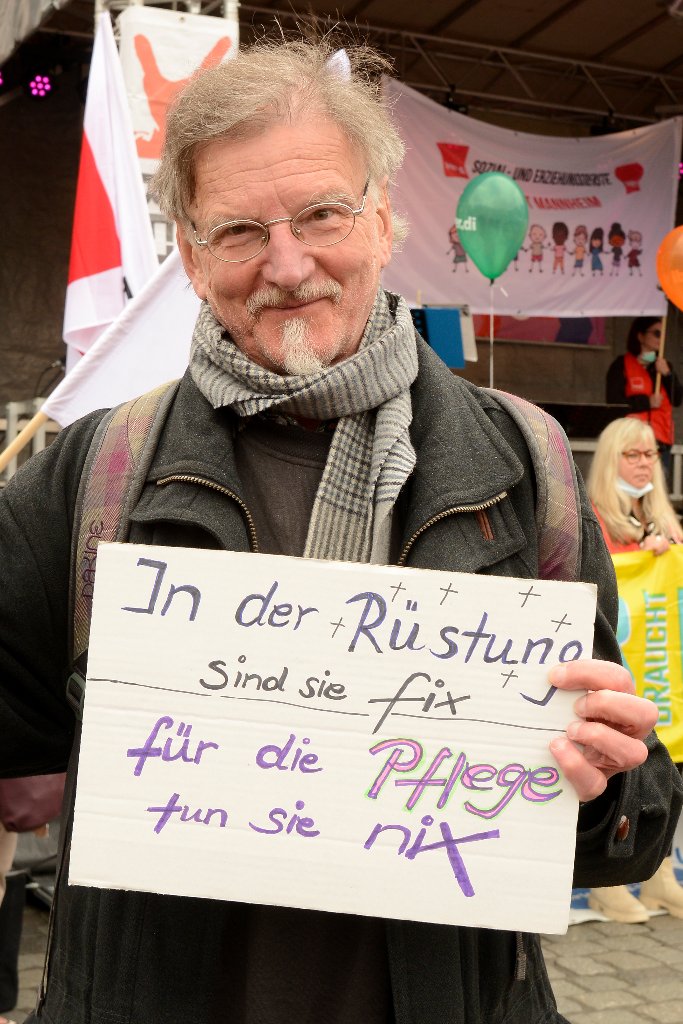 SOZIAL- UND ERZIEHUNGSDIENSTE
MANNHEIM
.di
In der Rüstung
sind sie fix
für die Pflege
tun sie nix
DAKINE
BRAUCHT